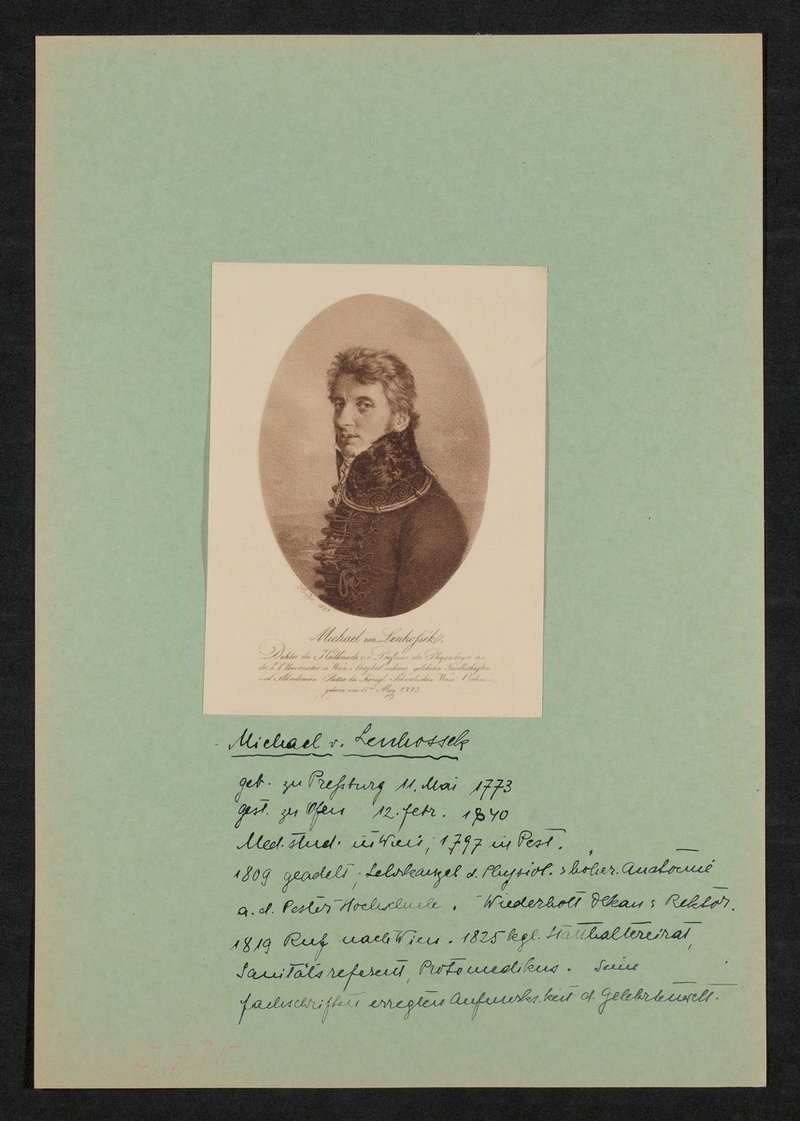 Michael von Lenhossék,
Doktor der Heilkunde o. ö. Professor der Physiologie an
der k. k. Universität in Wien Mitglied mehrerer gelehrten Gesellschaften
und Akademien Ritter des Königl. Schwedischen Wasa Ordens
geboren am 11ten May 1773
Michael v. Lenhossek
geb. zu Preßburg 11. Mai 1773
gest. zu Ofen 12. febr. 1840
Med. stud. in Wien, 1797 in Pest.
1809 geadelt; Lehrkanzel d. Physiol. höher. Anatomie
a. d. Pester Hochschule. Wiederholt Dekan Rektor.
1819 Ruf nach Wien. 1825 kgl. Statthaltereirat,
Sanitätsreferent, Protomedikus. Seine
fachschriften erregten Aufmerks.keit d. Gelehrtenwelt.